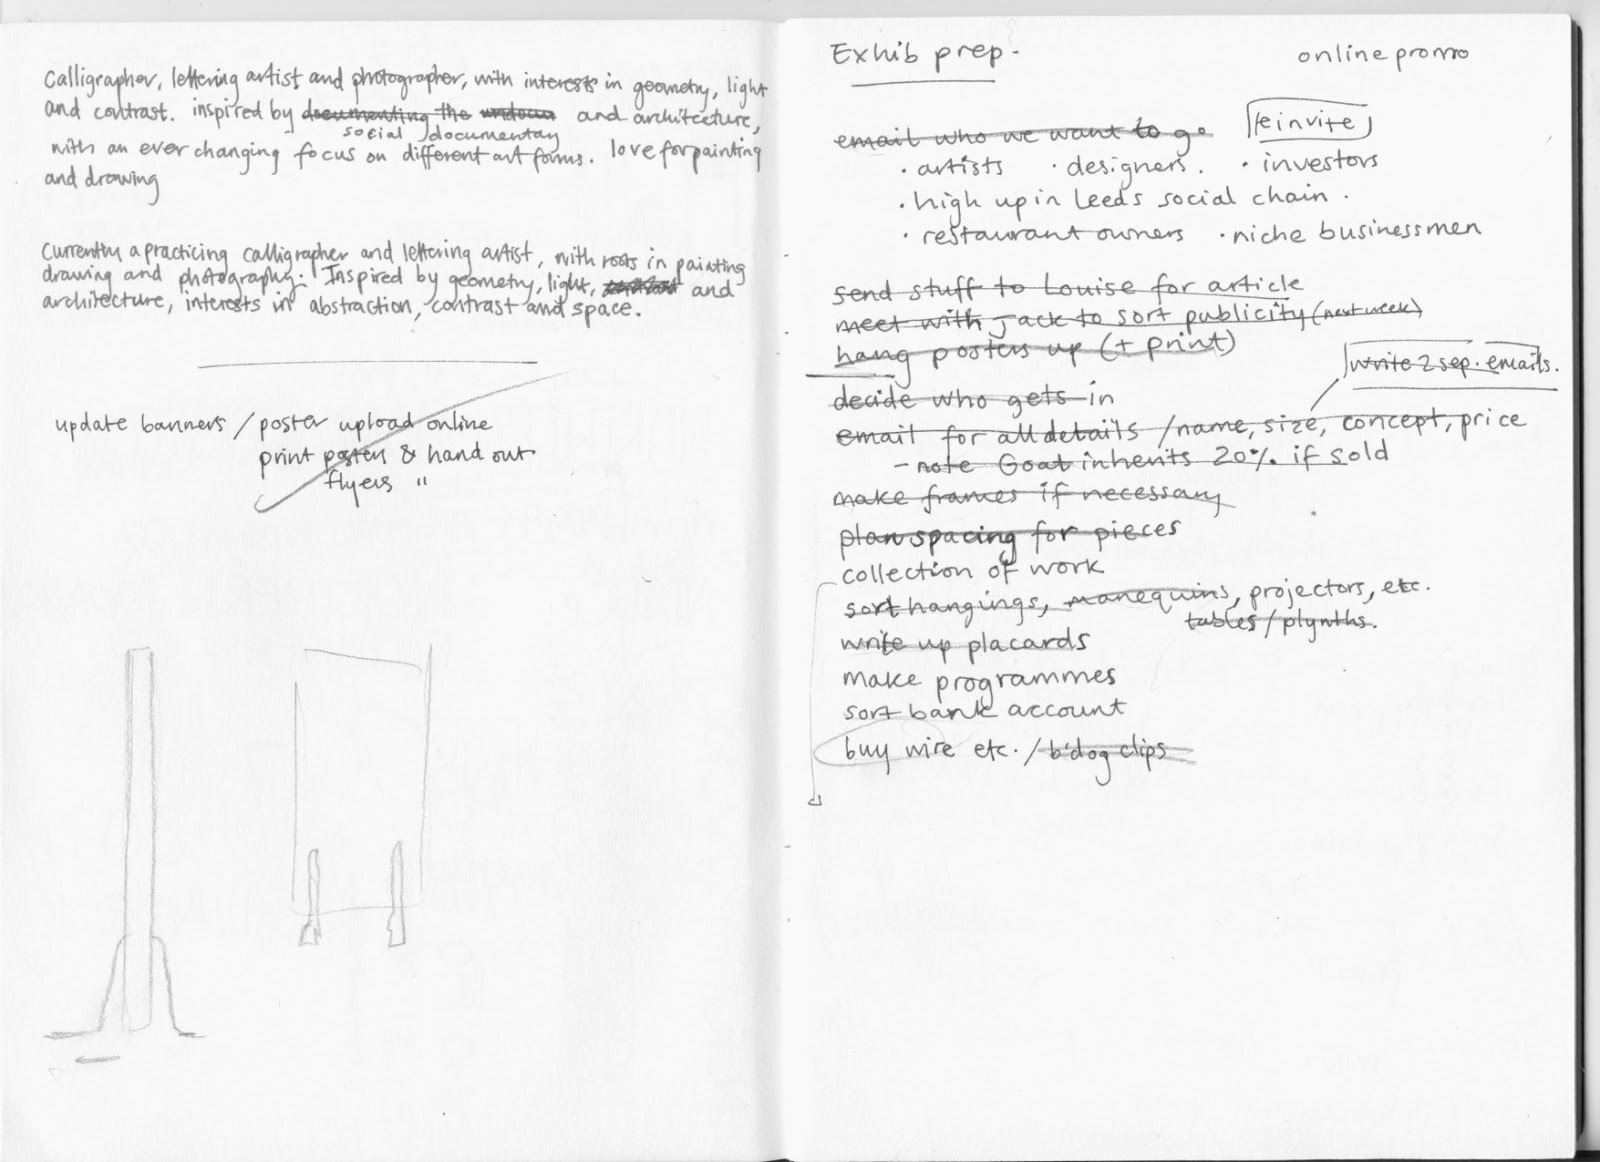 Calligrapher, lettering artist and photographer, with interests in geometry, light
and contrast. inspired by documenting the undocu and architecture,
social documentary
with an ever changing focus on different art forms. love for painting
and drawing
Currently a practicing calligrapher and lettering artist, with roots in painting
drawing and photography. Inspired by geometry, light, and
architecture, interests in abstraction, contrast and space.
update banners / poster upload online
print posters & hand out
flyers "
Exhib prep.
online promo
email who we want to go
reinvite
· artists · designers. · investors
· high up in Leeds social chain.
· restaurant owners · niche businessmen
send stuff to Louise for article
meet with Jack to sort publicity (next week)
hang posters up (+ print)
write 2 sep. emails.
decide who gets in
email for all details / name, size, concept, price
- note Goat inherits 20% if sold
make frames if necessary
plan spacing for pieces
collection of work
sort hangings, manequins, projectors, etc.
tables / plynths.
write up placards
make programmes
sort bank account
buy wire etc. / b'dog clips